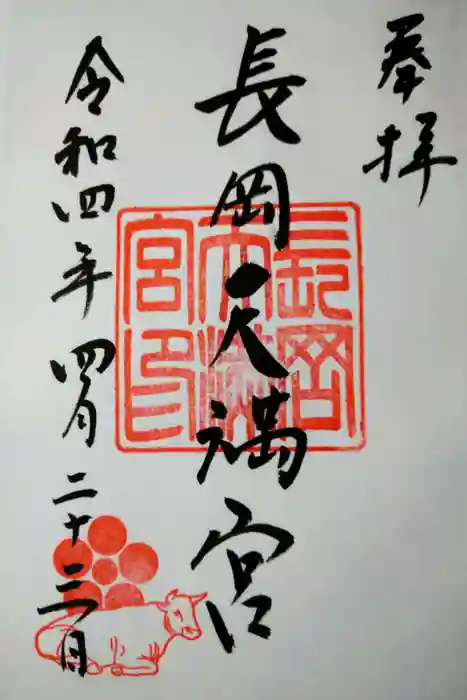 奉拝
長岡天満宮
長岡天満宮印
令和四年四月二十三日